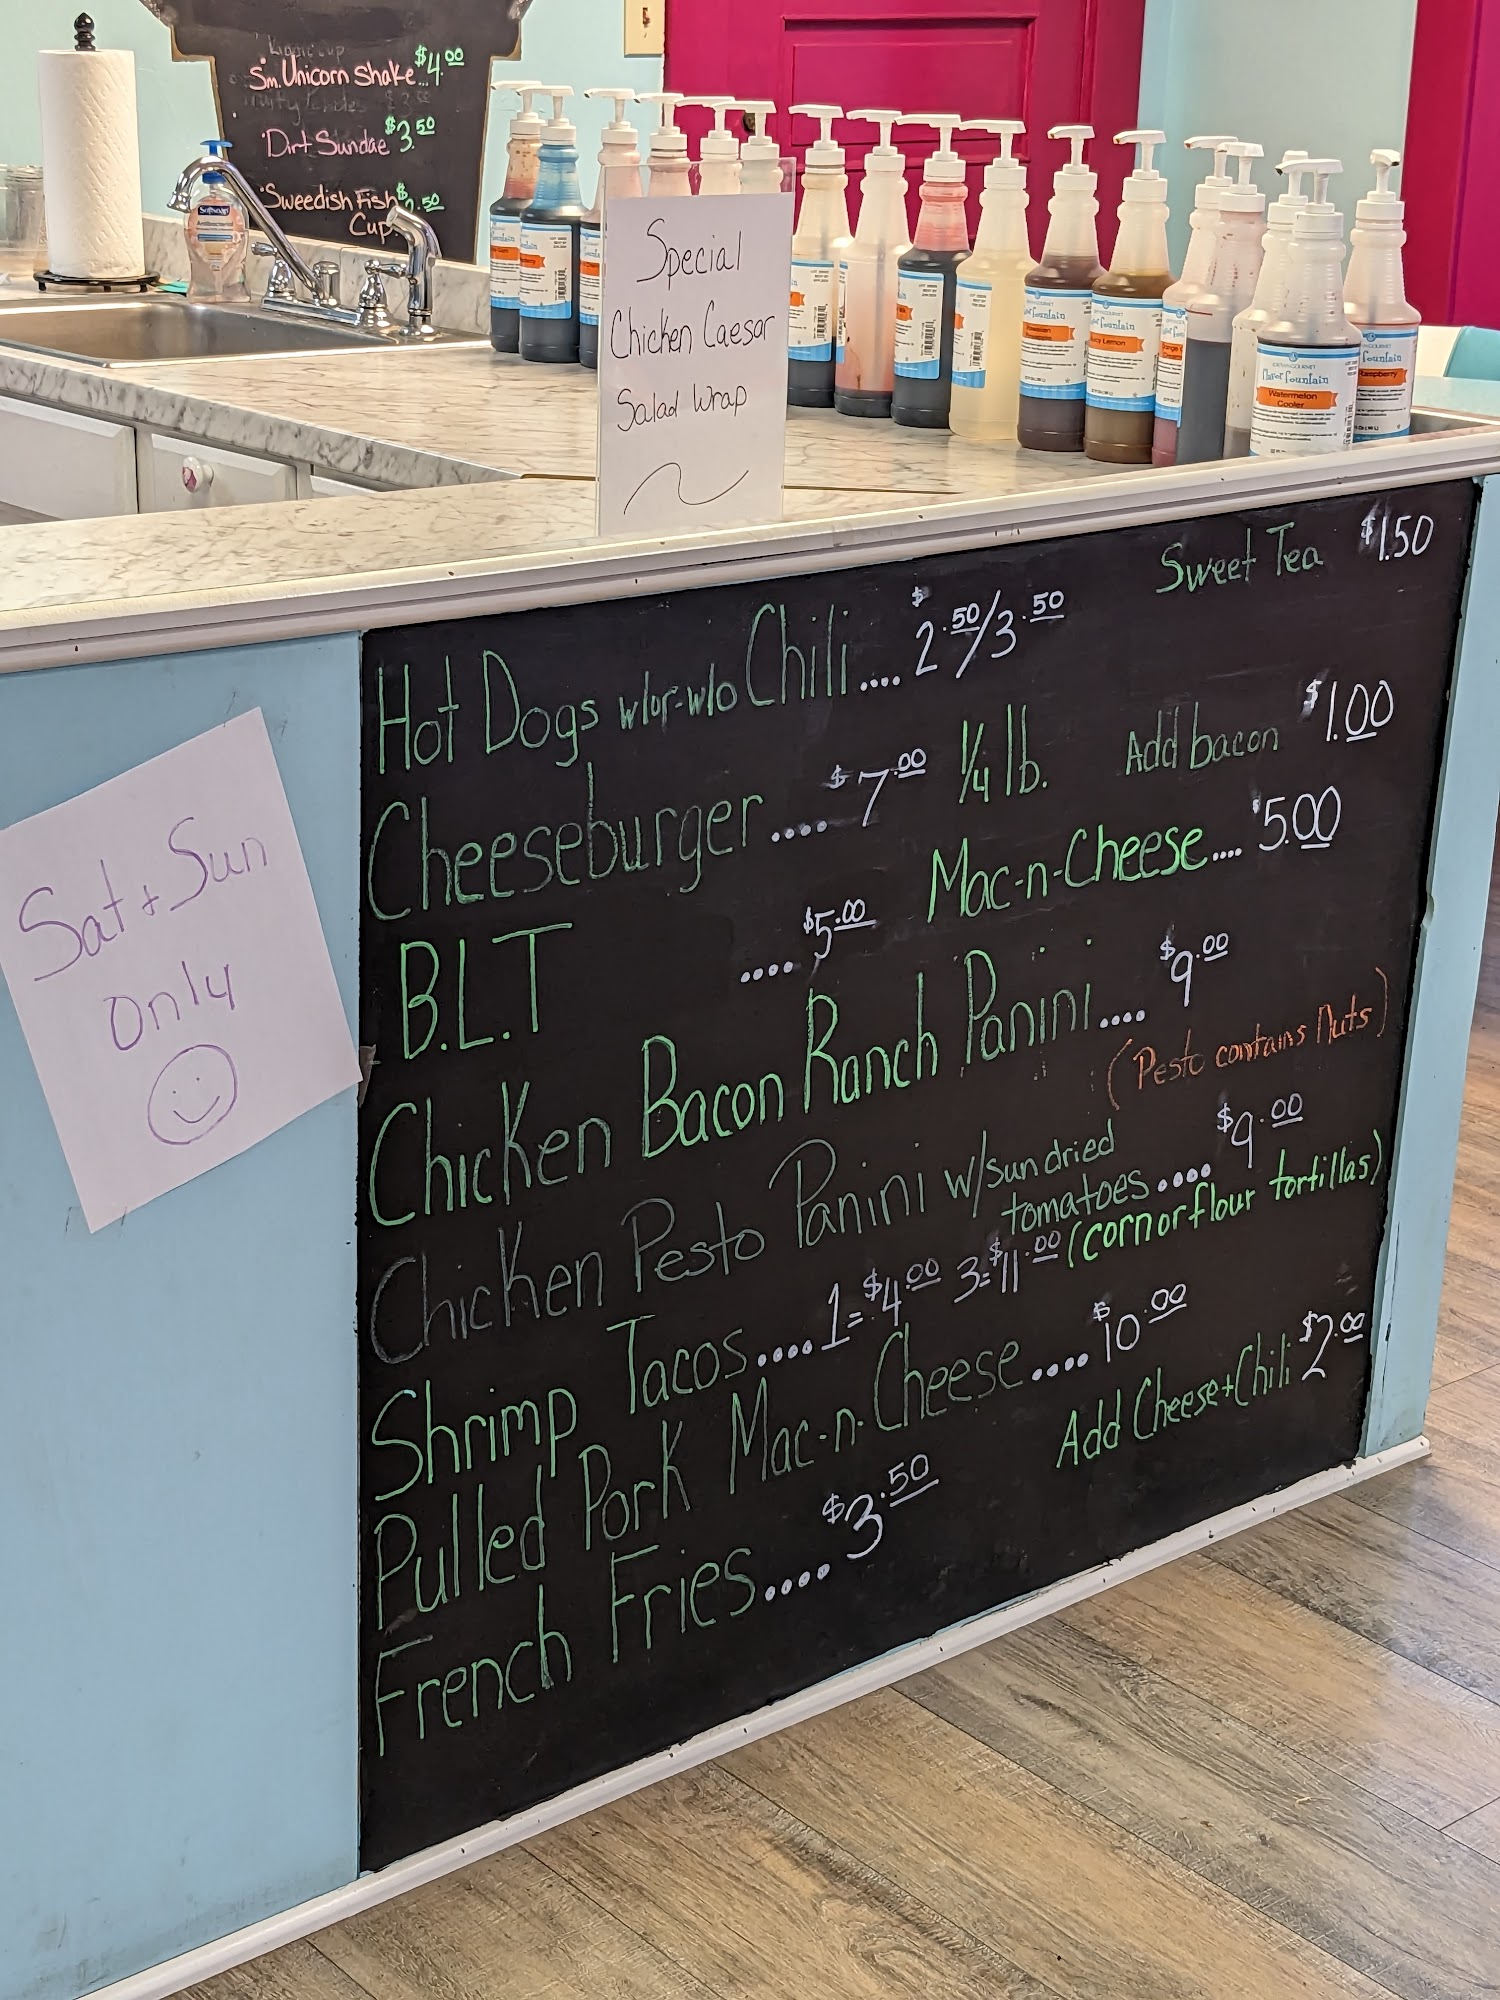 Sm. Unicorn Shake...$4.00
Dirt Sundae $3.50
Swedish Fish
Cup
Special
Chicken Caesar
Salad Wrap
Softsoap
flavor fountain
Lemon
flavor fountain
Watermelon
Cooler
fountain
Raspberry
Sweet Tea $1.50
Hot Dogs w/or-w/o Chili.... $2.50/3.50
Cheeseburger.... $7.00 1/4 lb. Add bacon $1.00
B.L.T .... $5.00 Mac-n-Cheese.... $5.00
Chicken Bacon Ranch Panini.... $9.00
(Pesto contains Nuts)
Chicken Pesto Panini w/sundried
tomatoes.... $9.00
Shrimp Tacos.... 1=$4.00 3=$11.00 (corn or flour tortillas)
Pulled Pork Mac-n-Cheese.... $10.00
French Fries.... $3.50 Add Cheese+Chili $2.00
Sat + Sun
only